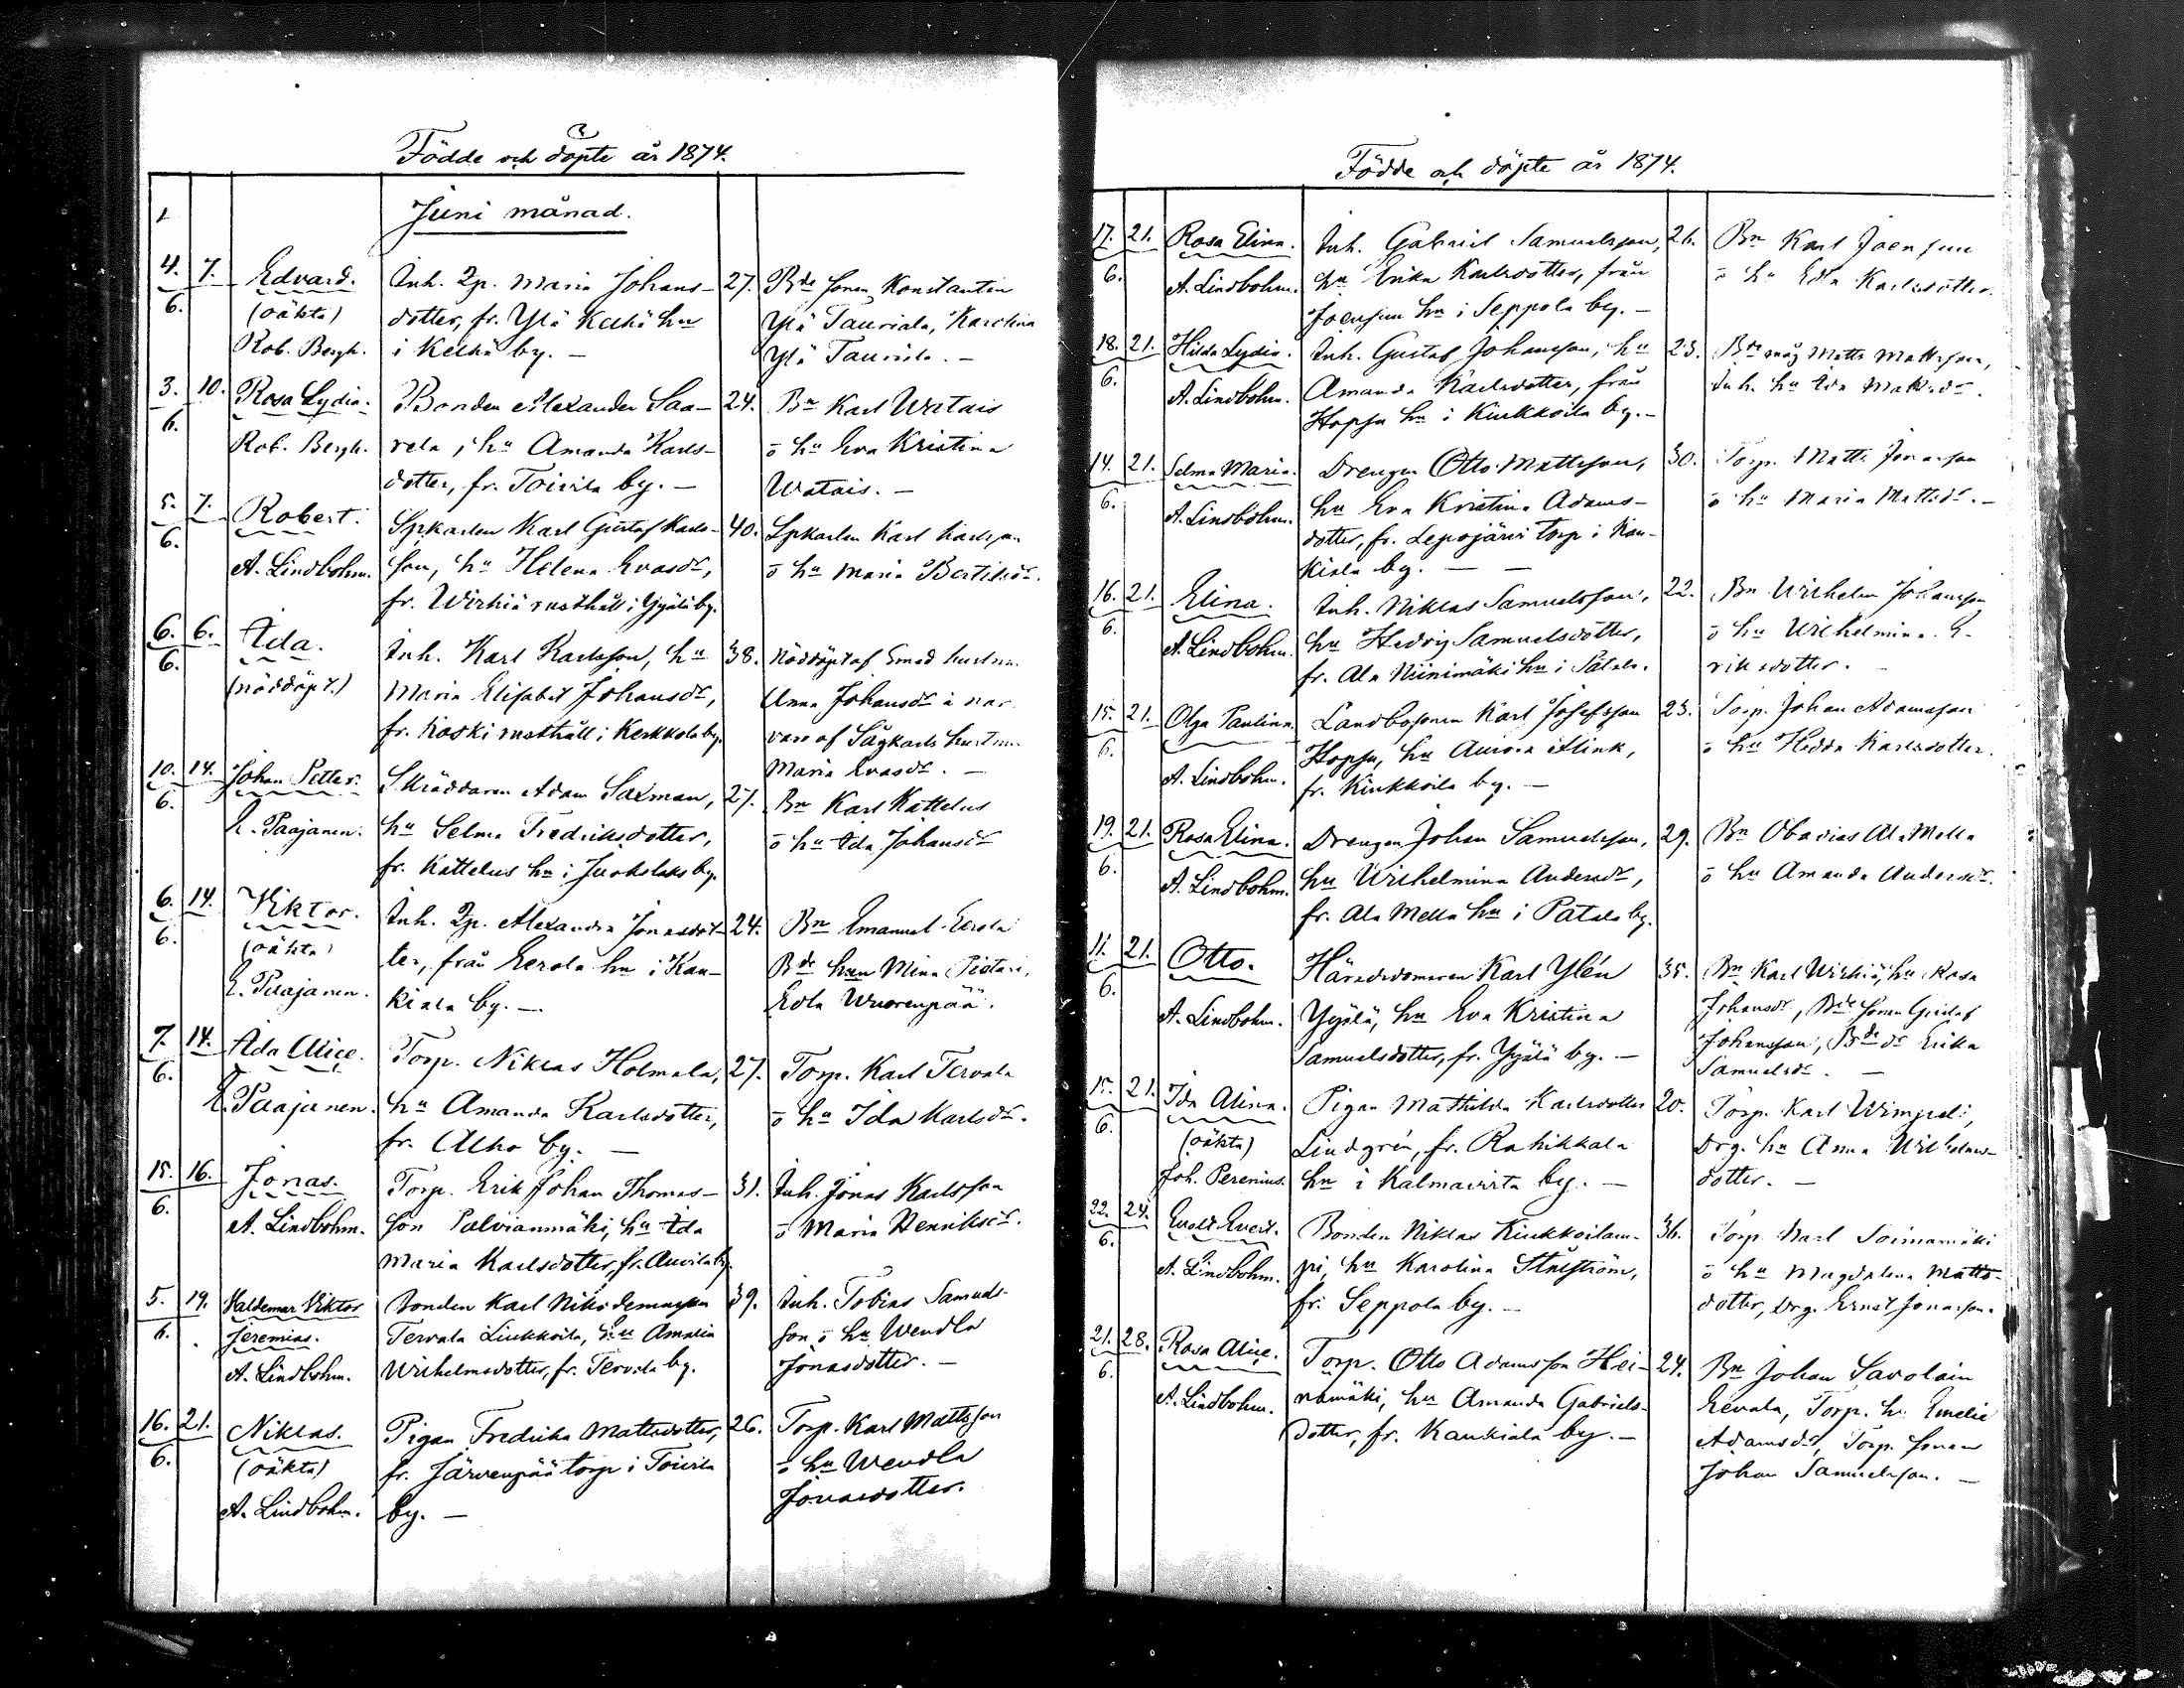 Födde och döpte år 1874.
Juni månad.
4. 7. Edvard. Inh. Qp. Maria Johans- 27. Bde sonen Konstantin
6. (oäkta) dotter, fr. Ylä Keihä hn Ylä Tauriala, Karolina
Rob. Bergh. i Keihä by. — Ylä Tauriala. —
3. 10. Rosa Lydia. Bonden Alexander Saa- 24. Bn Karl Watais
6. Rob. Bergh. rela, hu Amanda Karls- o hu Eva Kristina
dotter, fr. Toivila by. — Watais. —
5. 7. Robert. Spkarlen Karl Gustaf Karls- 40. Spkarlen Karl Karlsson
6. A. Lindbohm. son, hu Helena Evasdr, o hu Maria Bertilsdr.
fr. Wirhiä rusthåll i Yyälä by.
6. 6. Ida. Inh. Karl Karlsson, hu 38. Nöddöpt af Smed hustrun
6. (nöddöpt.) Maria Elisabet Johansdr, Anna Johansdr i när-
fr. Koski rusthåll i Kerkkola by. varo af Sågkarls hustrun
Maria Evasdr. —
10. 14. Johan Petter. Skräddaren Adam Saxman, 27. Bn Karl Kattelus
6. E. Paajanen. hu Selma Fredriksdotter, o hu Ida Johansdr
fr. Kattelus hn i Juokslaks by.
6. 14. Viktor. Inh. Qp. Alexandra Jonasdot- 24. Bn Emanuel Eerola
6. (oäkta) ter, från Eerola hn i Kau- Bde hun Mina Pietari,
E. Paajanen. kiala by. — Edla Wuorenpää.
7. 14. Ida Alice. Torp. Niklas Holmala, 27. Torp. Karl Tervala
6. E. Paajanen. hu Amanda Karlsdotter, o hu Ida Karlsdr.
fr. Alho by. —
15. 16. Jonas. Torp. Erik Johan Thomas- 31. Inh. Jonas Karlsson
6. A. Lindbohm. son Palvianmäki, hu Ida o Maria Henriksdr.
Maria Karlsdotter, fr. Auvila by.
5. 19. Valdemar Viktor Bonden Karl Nikodemusson 39. Inh. Tobias Samuels-
6. Jeremias. Tervala Liukkoila, hu Amalia son o hu Wendla
A. Lindbohm. Wilhelmsdotter, fr. Tervala by. Jonasdotter. —
16. 21. Niklas. Pigan Fredrika Mattsdotter, 26. Torp. Karl Mattsson
6. (oäkta) fr. Järvenpää torp i Toivila o hu Wendla
A. Lindbohm. by. — Jonasdotter.
Födde och döpte år 1874.
17. 21. Rosa Elina. Inh. Gabriel Samuelsson, 26. Bn Karl Joensuu
6. A. Lindbohm. hu Erika Karlsdotter, från o hu Edla Karlsdotter.
Joensuu hn i Seppola by. —
18. 21. Hilda Lydia. Inh. Gustaf Johansson, hu 23. Bde måg Matts Mattsson,
6. A. Lindbohm. Amanda Karlsdotter, från Inh. hu Ida Mattsdr.
Hopsu hn i Kiukkoila by. —
14. 21. Selma Maria. Drengen Otto Mattsson, 30. Torp. Matts Jonasson
6. A. Lindbohm. hu Eva Kristina Adams- o hu Maria Mattsdr. —
dotter, fr. Lepojärvi torp i Kau-
kiala by. —
16. 21. Elina. Inh. Niklas Samuelsson, 22. Bn Wilhelm Johansson
6. A. Lindbohm. hu Hedvig Samuelsdotter, o hu Wilhelmina E-
fr. Ala Niinimäki hn i Pätals. riksdotter.
15. 21. Olga Paulina. Landbosonen Karl Josefsson 23. Torp. Johan Adamsson
6. A. Lindbohm. Hopsu, hu Aurora Alink, o hu Hedda Karlsdotter.
fr. Kiukkoila by. —
19. 21. Rosa Elina. Drengen Johan Samuelsson, 29. Bn Obadias Ala Mella
6. A. Lindbohm. hu Wilhelmina Andersdr, o hu Amanda Andersdr.
fr. Ala Mella hn i Patals by.
11. 21. Otto. Häradsdomaren Karl Ylén 35. Bn Karl Wirhiä, hu Rosa
6. A. Lindbohm. Yyälä, hu Eva Kristina Johansdr, Bde sonen Gustaf
Samuelsdotter, fr. Yyälä by. — Johansson, Bde dr Erika
Samuelsdr. —
15. 21. Ida Alina. Pigan Mathilda Karlsdotter 20. Torp. Karl Wimpeli,
6. (oäkta) Lindgrén, fr. Rahikkala Drg. hu Anna Wilhelms-
Joh. Perenius. hn i Kalmavirta by. — dotter. —
22. 24. Evald Evert. Bonden Niklas Kiukkoilam- 36. Torp. Karl Soimamäki
6. A. Lindbohm. pi, hu Karolina Stålström, o hu Magdalena Matts-
fr. Seppola by. — dotter, Drg. Ernst Jonasson.
21. 28. Rosa Alice. Torp. Otto Adamsson Hei- 24. Bn Johan Savolain
6. A. Lindbohm. nämäki, hu Amanda Gabriels- Eevala, Torp. hu Emelie
dotter, fr. Kaukiala by. — Adamsdr, Torp. sonen
Johan Samuelsson. —